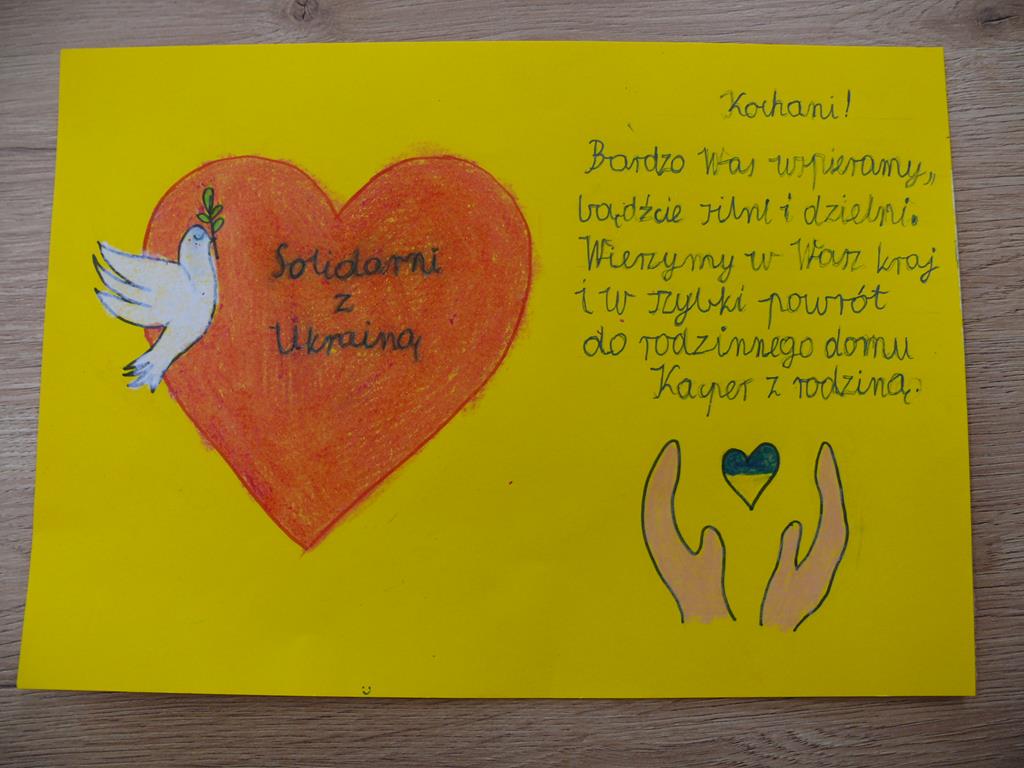 Solidarni
z
Ukrainą
Kochani!
Bardzo Was wspieramy,
bądźcie silni i dzielni.
Wierzymy w Wasz kraj
i w szybki powrót
do rodzinnego domu
Kacper z rodziną.